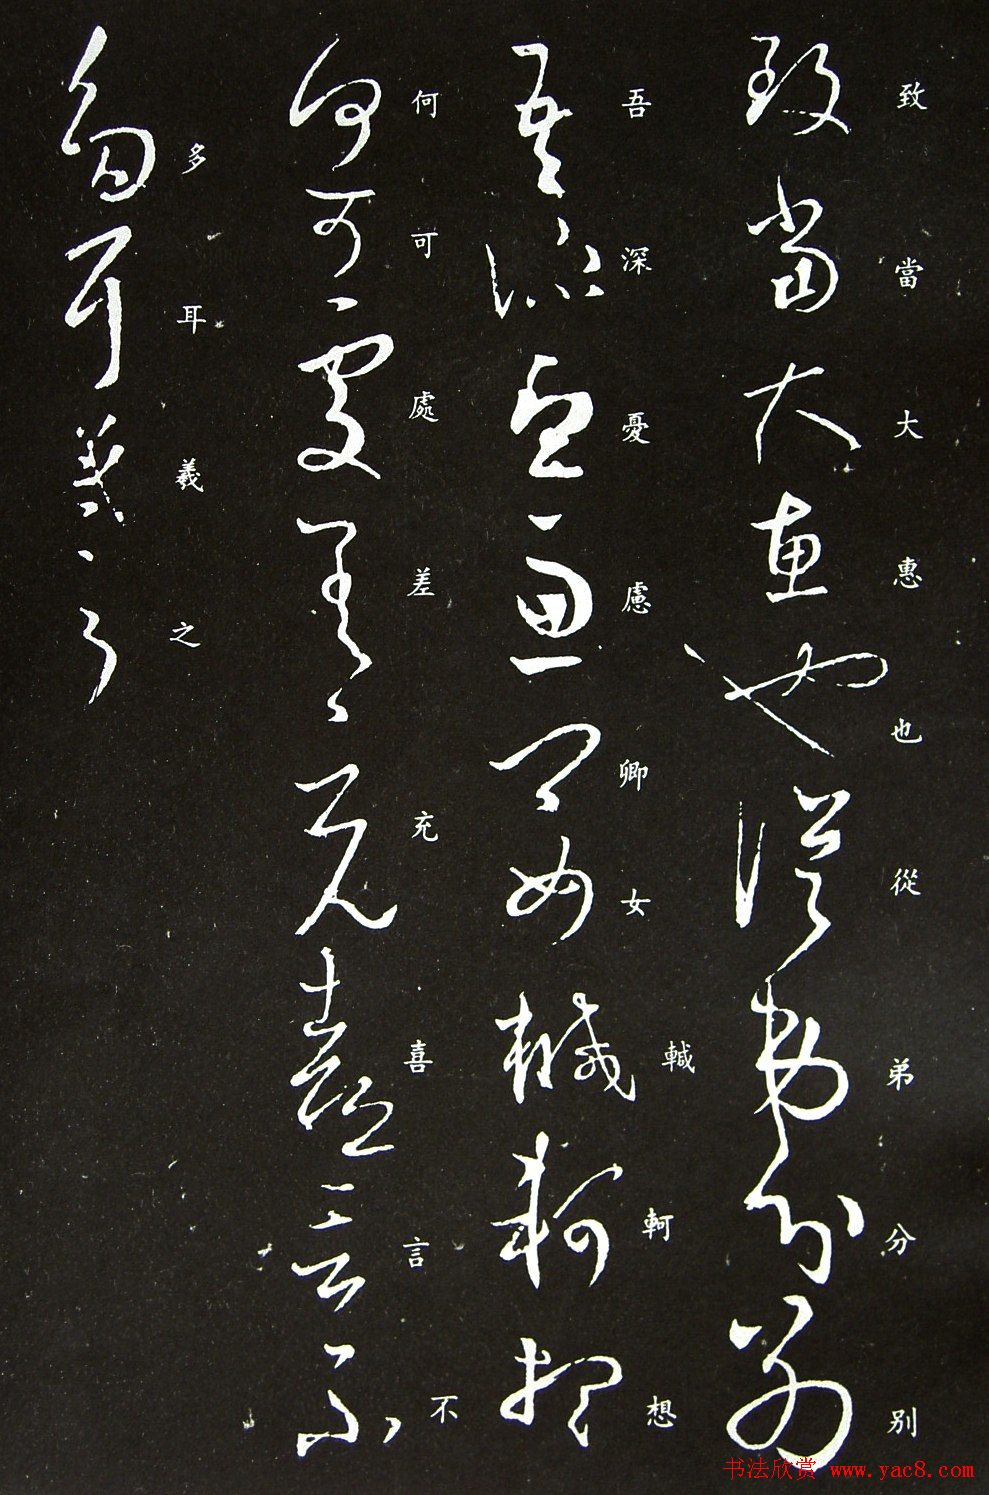 致當大惠也從弟分别
吾深憂慮卿女輱軻想
何可處差充喜言不
多耳羲之
书法欣赏 www.yac8.com